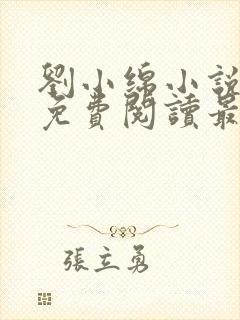 劉小綿小說
免費閱讀最
張立勇